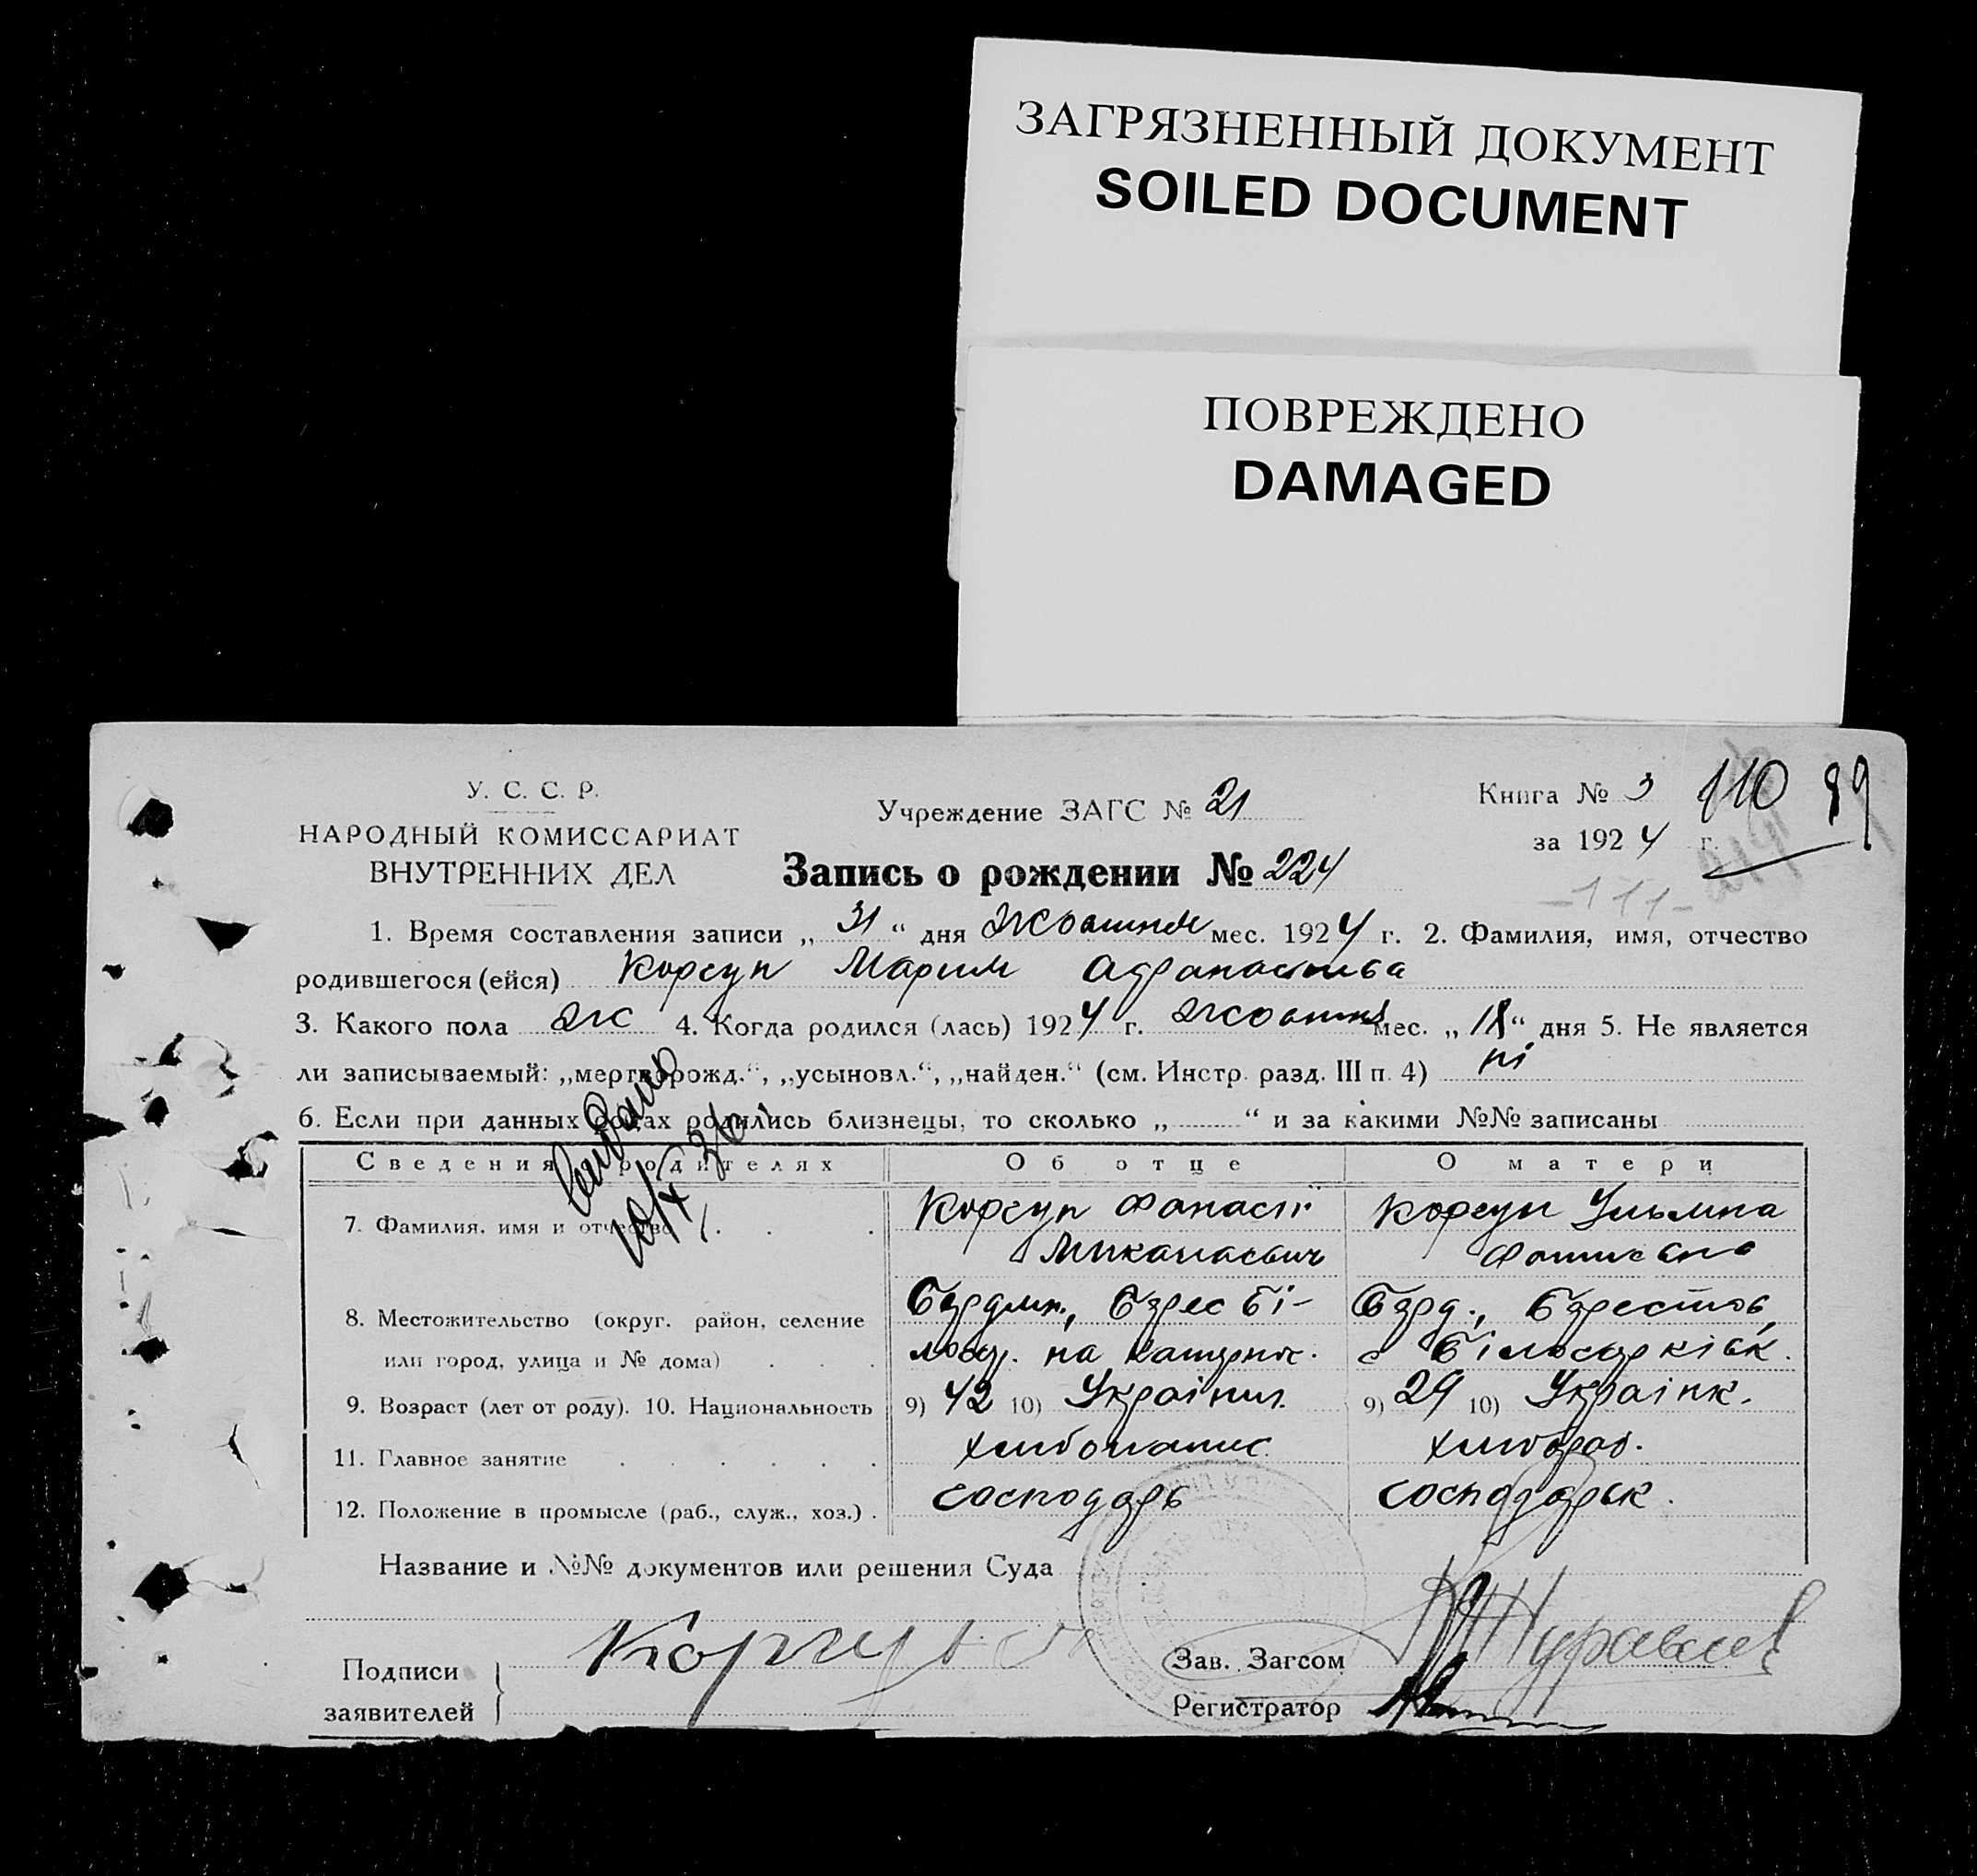 ЗАГРЯЗНЕННЫЙ ДОКУМЕНТ
SOILED DOCUMENT
ПОВРЕЖДЕНО
DAMAGED
У. С. С. Р.
НАРОДНЫЙ КОМИССАРИАТ
ВНУТРЕННИХ ДЕЛ
Учреждение ЗАГС № 21
Книга № 3 110 89
за 1924 г.
-111-
Запись о рождении № 224
1. Время составления записи „ 31 “ дня Жовтня мес. 1924 г. 2. Фамилия, имя, отчество
родившегося (ейся) Корсун Марии
3. Какого пола Ж 4. Когда родился (лась) 1924 г. Жовтня мес. „ 18 “ дня 5. Не является
ли записываемый: „мертворожд.“, „усыновл.“, „найден.“ (см. Инстр. разд. III п. 4) ні
6. Если при данных родах родились близнецы, то сколько „ “ и за какими №№ записаны
Сведения о родителях Об отце О матери
7. Фамилия, имя и отчество Корсун Фанасій Корсун Ульяна
8. Местожительство (округ. район, селение Берест
или город, улица и № дома) на с
9. Возраст (лет от роду). 10. Национальность 9) 42 10) Українц. 9) 29 10) Українк.
11. Главное занятие
12. Положение в промысле (раб., служ., хоз.) господарь господарьк.
Название и №№ документов или решения Суда
Подписи
заявителей
Корсун
Зав. Загсом
Регистратор